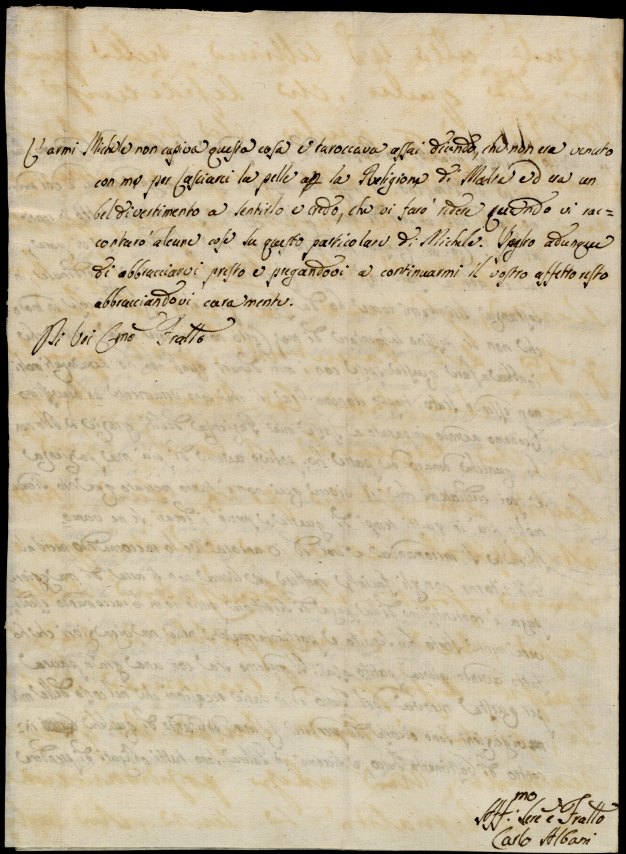 armi Michele non capiva questa cosa e taroccava assai dicendo, che non era venuto
con me per lasciarci la pelle app la Religione di Malta ed era un
bel divertimento a sentirlo e credo, che vi farò ridere quando vi rac=
contarò alcune cose su questo particolare di Michele. Spero adunque
di abbracciarvi presto e pregandovi a continuarmi il vostro affetto resto
abbracciandovi caramente.
Di Voi Cmo Fratto
Affmo Sere e Fratto
Carlo Albani